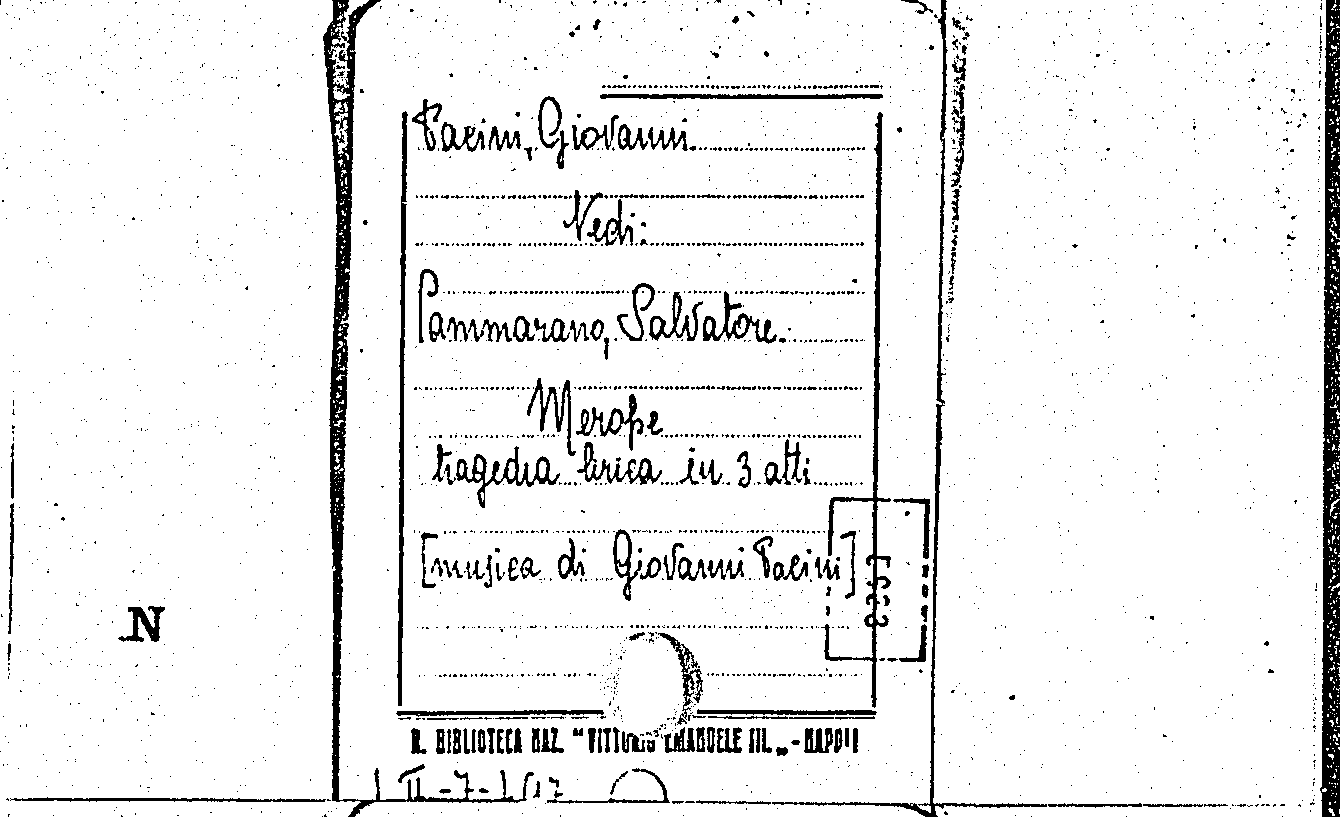 Pacini, Giovanni.
Vedi:
Cammarano, Salvatore.
Merope
tragedia lirica in 3 atti
[musica di Giovanni Pacini]
N
R. BIBLIOTECA NAZ. "VITTORIO EMANUELE III." - NAPOLI